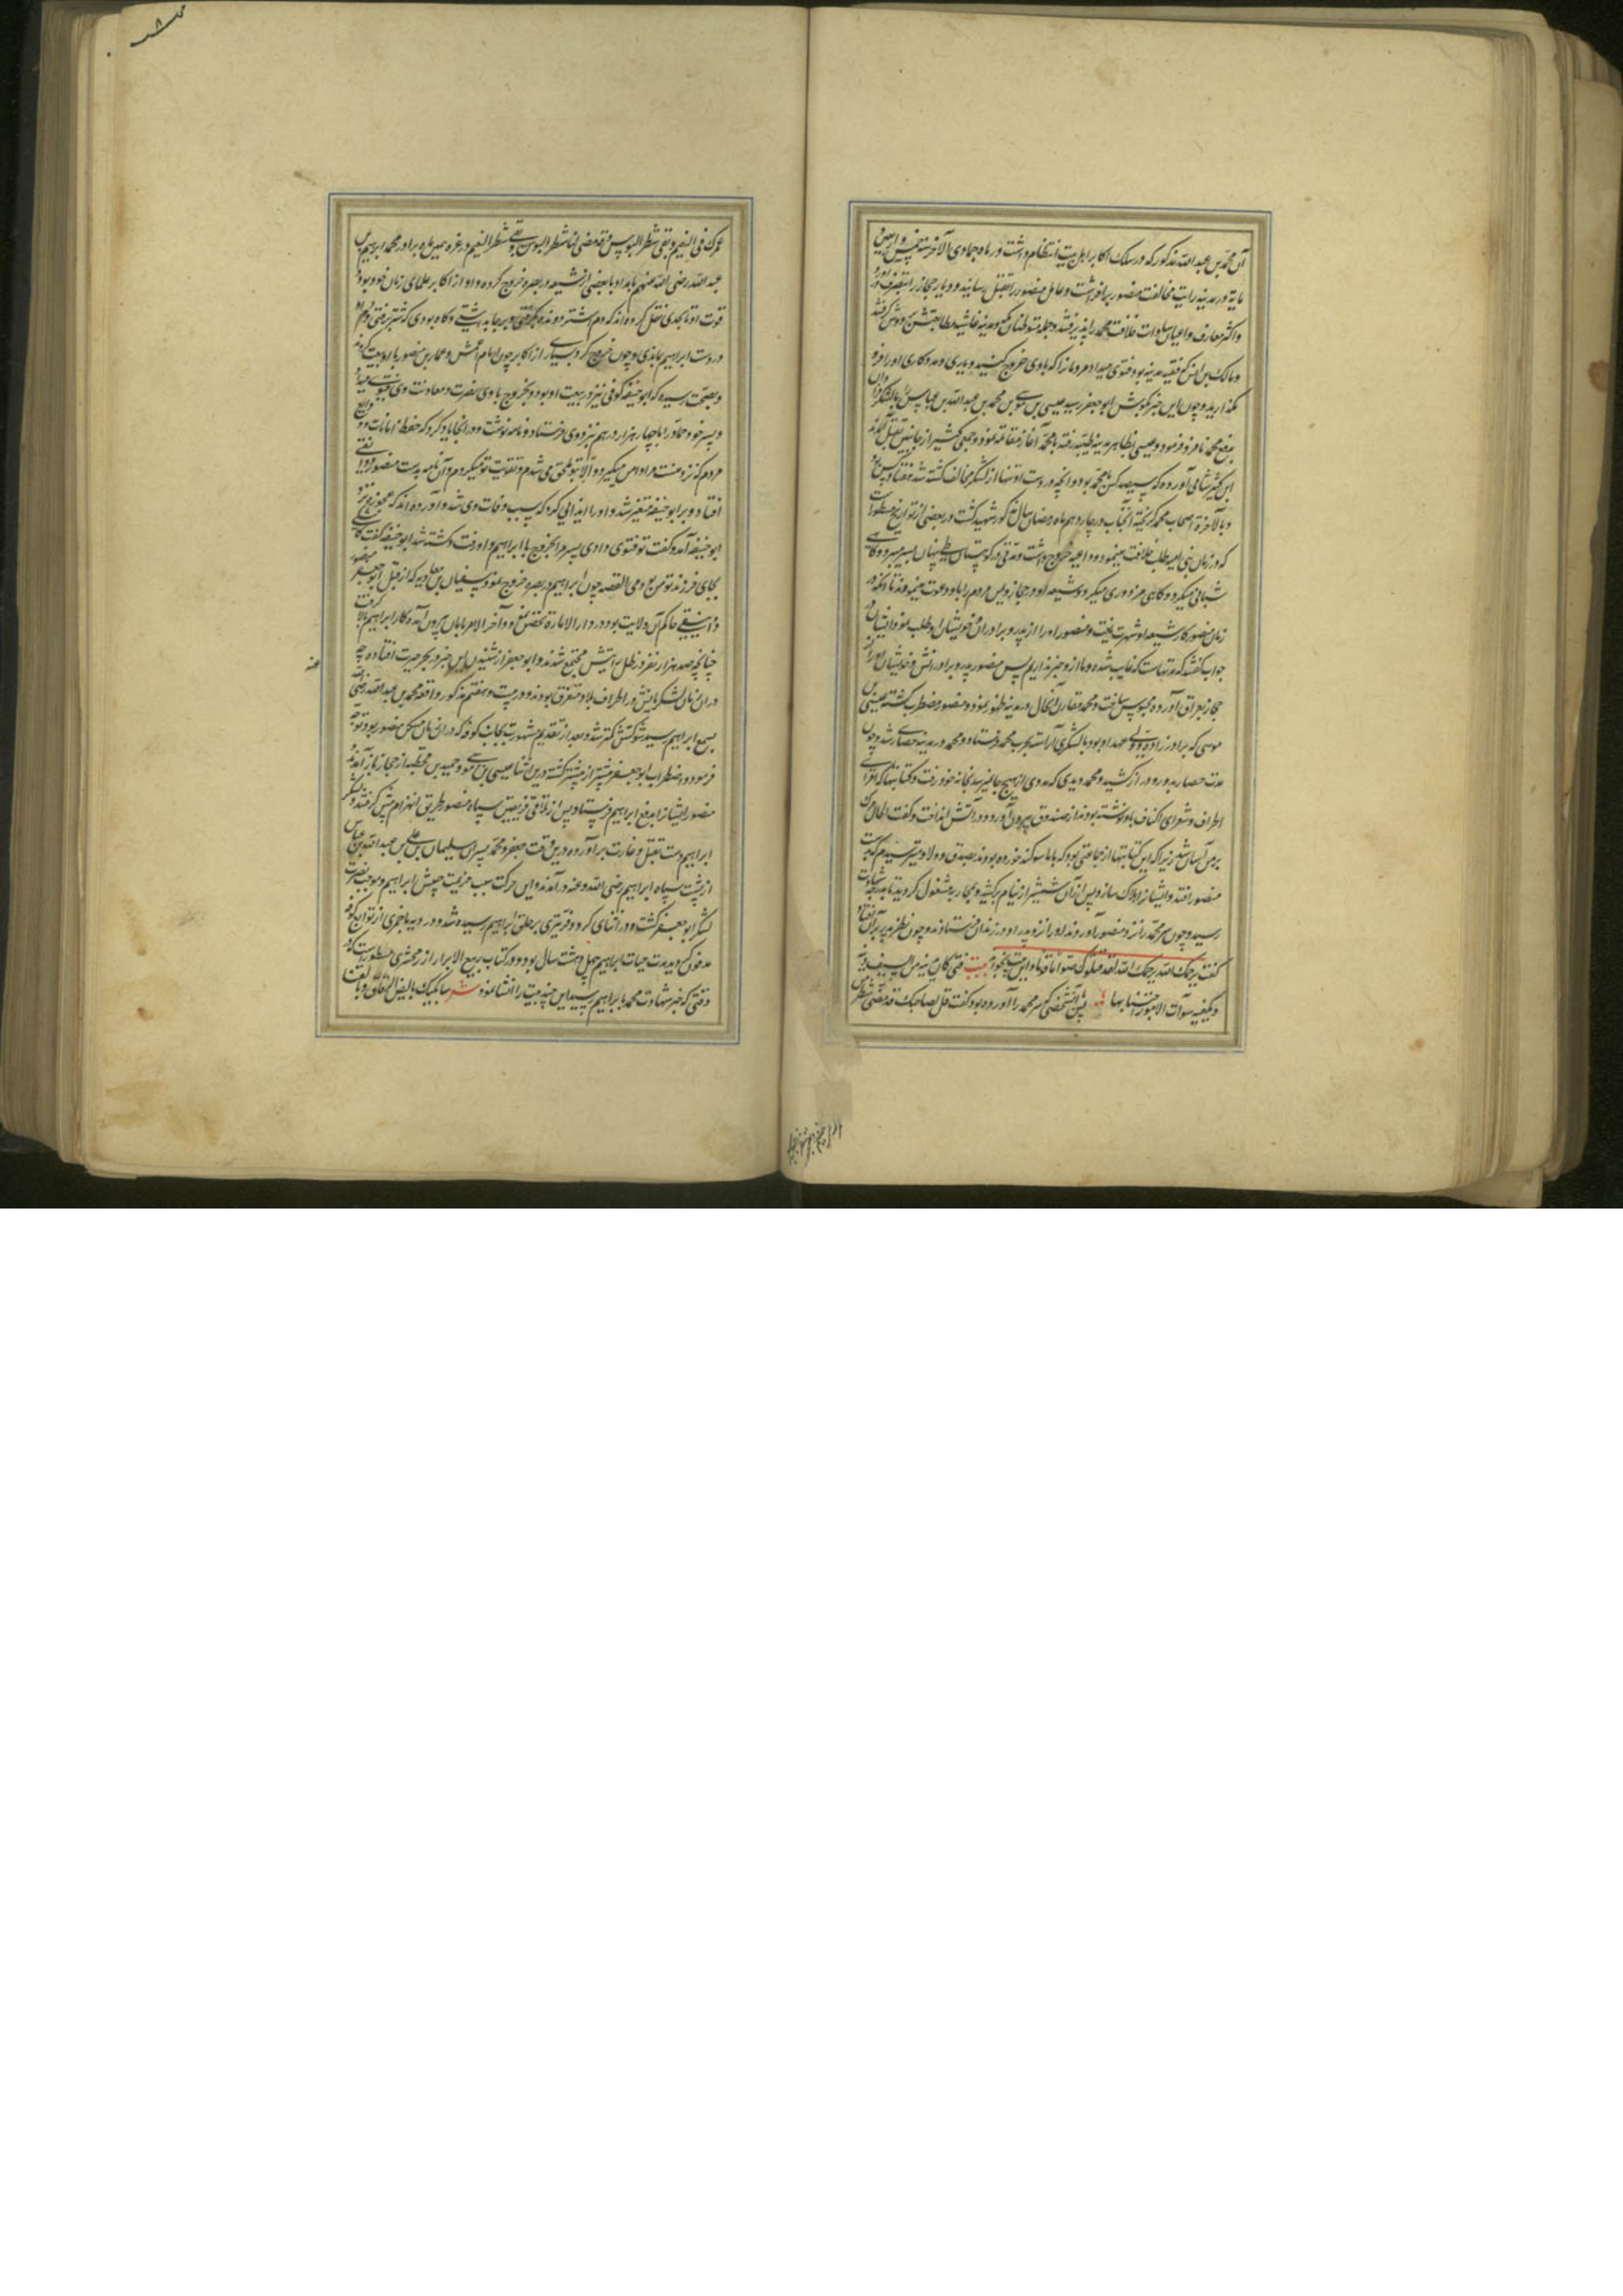 آن محمد بن عبدالله مذکور که در سلک اکابر اهل بیت انتظام داشت در ماه جمادی الآخر سنه خمس و اربعین و
مایة در مدینه رایت مخالفت منصور برافراشت و عامل منصور را بقتل رسانیده و دیار حجاز را بتصرف درآورد
و اکثر معارف و اعیان سادات خلافت محمد را پذیرفتند و جمله متوطنان مکه و مدینه غاشیه مطاوعتش بر دوش گرفتند
و مالک بن انس که فقیه مدینه بود فتوی میداد مردمانرا که با وی خروج کنند و یاری و مددکاری او را فرو
نگذارید و چون این خبر بگوش ابوجعفر رسید عیسی بن موسی بن محمد بن عبدالله بن عباس را با لشکر فراوان
بدفع محمد نامزد فرمود و عیسی بظاهر مدینه طیبه رفته با محمد آغاز مقاتله نمود و جمعی کثیر از جانبین بقتل آمدند
ابن کثیر شامی آورده که سیصد کس با محمد بود و آنچه در دست او تنها از لشکر مخالف کشته شد هفتاد کس بود
و بالآخره اصحاب محمد گریخته آنجناب در چهاردهم ماه رمضان سال مذکور شهید گشت و در بعضی از تواریخ مسطور است
که در زمان بنی امیه طلب خلافت مینمود و داعیه خروج داشت و مدتی در کوهستان پنهان بسر میبرد و گاهی
شبانی میکرد و گاهی مزدوری میکرد و شیعه او در حجاز و یمن مردم را باو دعوت مینمودند تا آنکه در
زمان منصور کار شیعه او شهرت یافت و منصور او را از پدر و برادران و خویشان او طلب نمود ایشان در
جواب گفتند که مدتهاست که غایب شده و ما از او خبر نداریم پس منصور پدر و برادرانش و خویشان او را از
حجاز بعراق آورده محبوس ساخت و محمد مقارن آنحال در مدینه ظهور نمود و منصور مضطرب گشته عیسی بن
موسی که برادرزاده و ولی عهد او بود با لشکری آراسته بحرب محمد فرستاد و محمد در مدینه حصاری شد و چون
مدت حصار بدور و دراز کشید و محمد دید که مددی از هیچ جا نمیرسد بخانه خود رفت و کتابتها که امرای
اطراف و شعرای اکناف باو نوشته بودند از صندوق بیرون آورد و در آتش انداخت و گفت الحال مرگ
بر من آسان شد زیرا که این کتابتها از جماعتی بود که با ما سوگند خورده بودند بصدق و ولا و میترسیدم که بدست
منصور افتد و ایشانرا هلاک سازد و پس از آن شمشیر از نیام برکشید و بمحاربه مشغول گردید تا بدرجه شهادت
رسید و چون سر محمد را نزد منصور آوردند او را نزد پدر او در زندان فرستادند و چون نظر پدر بر آن افتاد
گفت یرحمک الله یرحمک الله لقد قتلوک صواما قواما و این بیت بخواند بیت فتی کان یدنیه من السیف دینه
و یکفیه سوآت الامور اجتنابها پس آنشخص که سر محمد را آورده بود گفت قل لصاحبک قد مضی شطر من
عمرک فی النعیم و بقی شطر البؤس و قد مضی لنا شطر البؤس و بقی شطر النعیم و در غره همین ماه برادر محمد ابراهیم بن
عبدالله رضی الله عنهم بامداد با بعضی از شیعه در بصره خروج کرده و او از اکابر علمای زمان خود بود و
قوت او تا بحدی نقل کرده اند که دم اشتر دونده بگرفتی و بر جا بداشتی و گاه بودی که شتر برفتی و دم او
در دست ابراهیم بماندی و چون خروج کرد بسیاری از اکابر چون امام اعمش و عمار بن منصور با او بیعت کردند
و بصحت رسیده که ابو حنیفه کوفی نیز در بیعت او بود و بخروج با وی و نصرت و معاونت وی فتوی میداد
و پسر خود حماد را با چهار هزار درهم نزد وی فرستاد و نامه نوشت و در آنجا یاد کرد که حفظ امانات و ودایع
مردم که نزد منست مرا دامن میگیرد و الا بتو ملحق می شدم و تقویت تو میکردم و آن نامه بدست منصور دوانیقی
افتاد و بر ابو حنیفه متغیر شد و او را ایذائی کرد که سبب وفات وی شد و آورده اند که عجوزه نزد
ابو حنیفه آمد و گفت تو فتوی دادی پسر مرا بخروج با ابراهیم و او رفت و کشته شد ابو حنیفه گفت کاشکی
بجای فرزند تو من بودمی القصه چون ابراهیم در بصره خروج نمود سفیان بن معاویه که از قبل ابوجعفر منصور
دوانیقی حاکم آن ولایت بود در دار الاماره تحصن نمود و آخر الامر بامان بیرون آمده کار ابراهیم بالا گرفت
چنانچه صد هزار نفر در ظل رایتش مجتمع شدند و ابو جعفر از شنیدن این خبر در بحر حیرت افتاده چه
در آن زمان لشکریانش در اطراف بلاد متفرق بودند و در بیست و هفتم مذکور واقعه محمد بن عبدالله رضی الله عنه
بسمع ابراهیم رسید شوکتش کمتر شد و بعد از تقدیم مشورت بجانب کوفه که در آن زمان مسکن منصور بود توجه
فرمود و اضطراب ابو جعفر بیشتر از پیشتر گشت درین اثنا عیسی بن موسی و حمید بن قحطبه از حجاز باز آمدند و
منصور ایشانرا بدفع ابراهیم فرستاد و پس از تلاقی فریقین سپاه منصور طریق انهزام پیش گرفتند و لشکر
ابراهیم دست بقتل و غارت برآورده درین وقت جعفر و محمد پسران سلیمان بن علی بن عبدالله بن عباس
از پشت سپاه ابراهیم رضی الله عنه درآمدند و این حرکت سبب هزیمت جیش ابراهیم و موجب نصرت
لشکر ابو جعفر گشت و در اثنای کر و فر تیری بر حلق ابراهیم رسیده شد و در دیه باخمری از توابع کوفه
مدفون گردید مدت حیات ابراهیم چهل و هشت سال بود و در کتاب ربیع الابرار از زمخشری مسطور است که در
وقتی که خبر شهادت محمد بابراهیم رسید این چند بیت را انشا نمود شعر